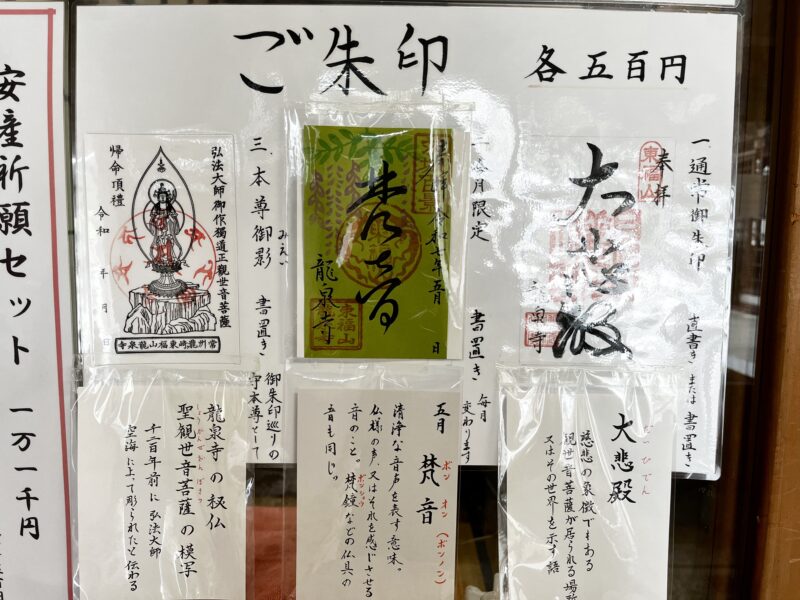 ご朱印
各五百円
一、通常御朱印
直書き または 書置き
奉拝
東福山
大悲殿
龍泉寺
一、今月限定
書置き
毎月
変わります
令和七年五月 日
梵音
龍泉寺
東福山
三、本尊御影
みえい
書置き
御朱印巡りの
守本尊として
弘法大師御作獨道正観世音菩薩
帰命頂禮
令和 年 月 日
常州龍崎東福山龍泉寺
大悲殿
だいひでん
慈悲の象徴でもある
観世音菩薩が居られる場所
又はその世界を示す語
五月 梵音
ボン オン(ボンノン)
清浄な音声を表す意味。
仏様の声、又はそれを感じさせる
音のこと。梵鐘などの仏具の
ボンショウ
音も同じ。
龍泉寺の秘仏
聖観世音菩薩の模写
しょうかんぜおんぼさつ
千二百年前に弘法大師
空海に上って彫られたと伝わる
安産祈願セット 一万一千円